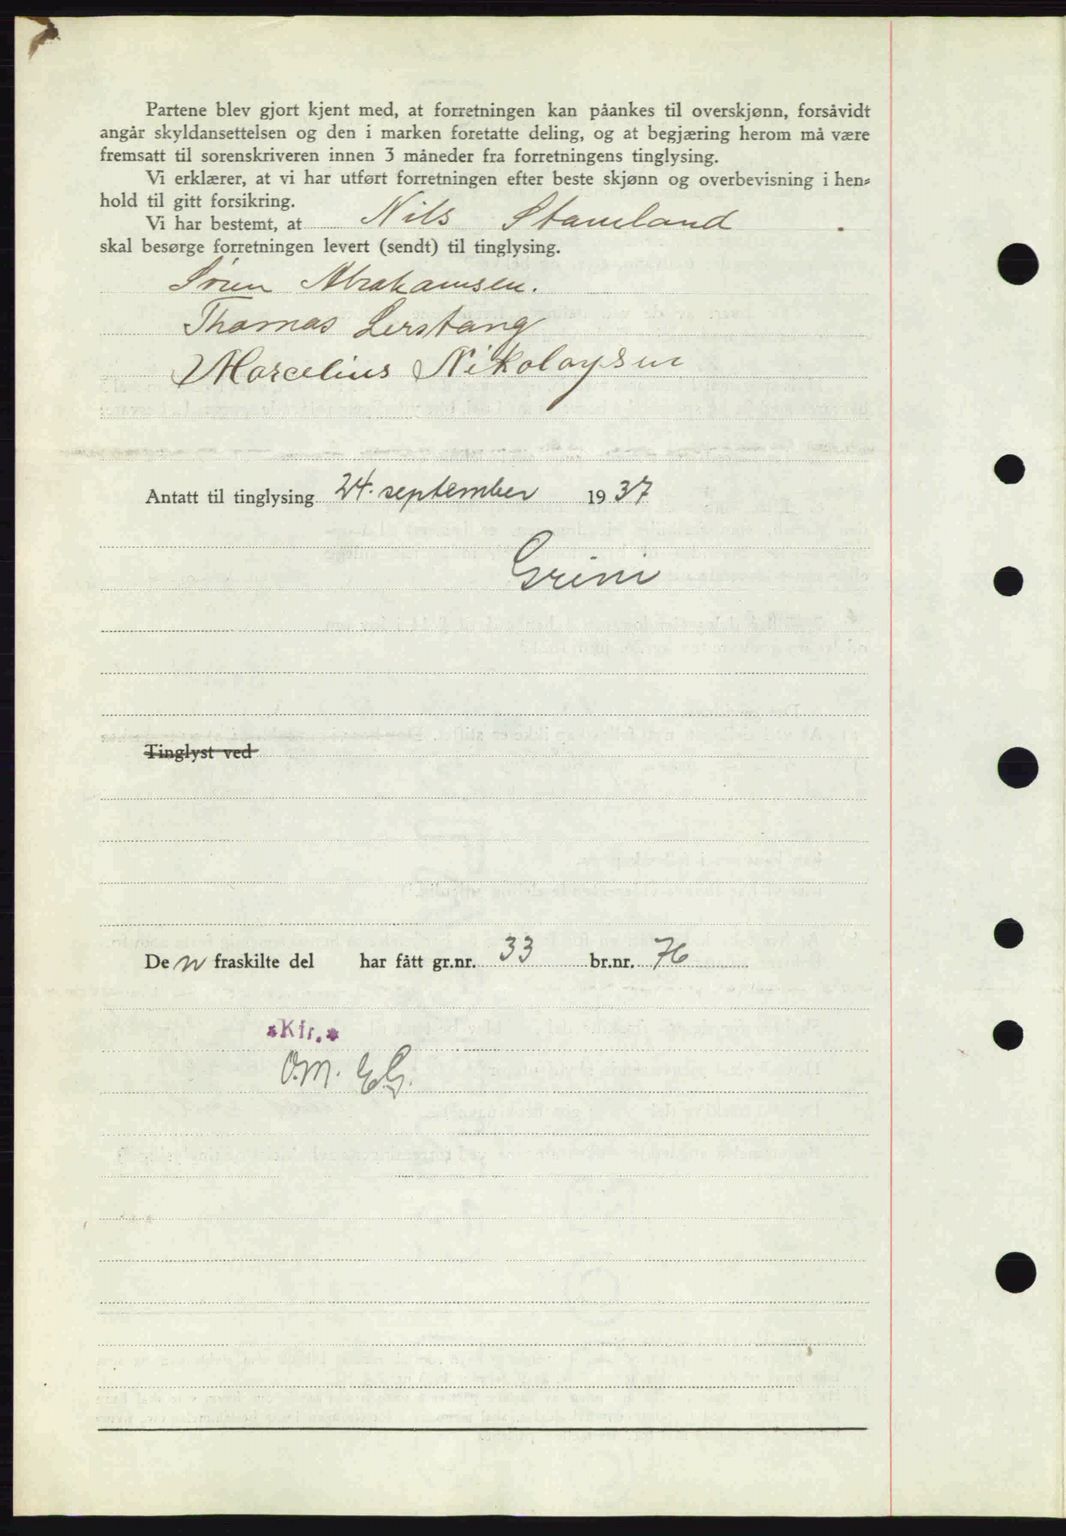 Partene blev gjort kjent med, at forretningen kan påankes til overskjønn, forsåvidt
angår skyldansettelsen og den i marken foretatte deling, og at begjæring herom må være
fremsatt til sorenskriveren innen 3 måneder fra forretningens tinglysing.
Vi erklærer, at vi har utført forretningen efter beste skjønn og overbevisning i hen-
hold til gitt forsikring.
Vi har bestemt, at Nils Stamland
skal besørge forretningen levert (sendt) til tinglysing.
Søren Abrahamsen.
Thomas Lerstang
Marcelius Nikolaysen
Antatt til tinglysing 24. september 1937
Grini
Tinglyst ved
De n fraskilte del har fått gr.nr. 33 br.nr. 76
*Kfr.*
O.M. E.G.